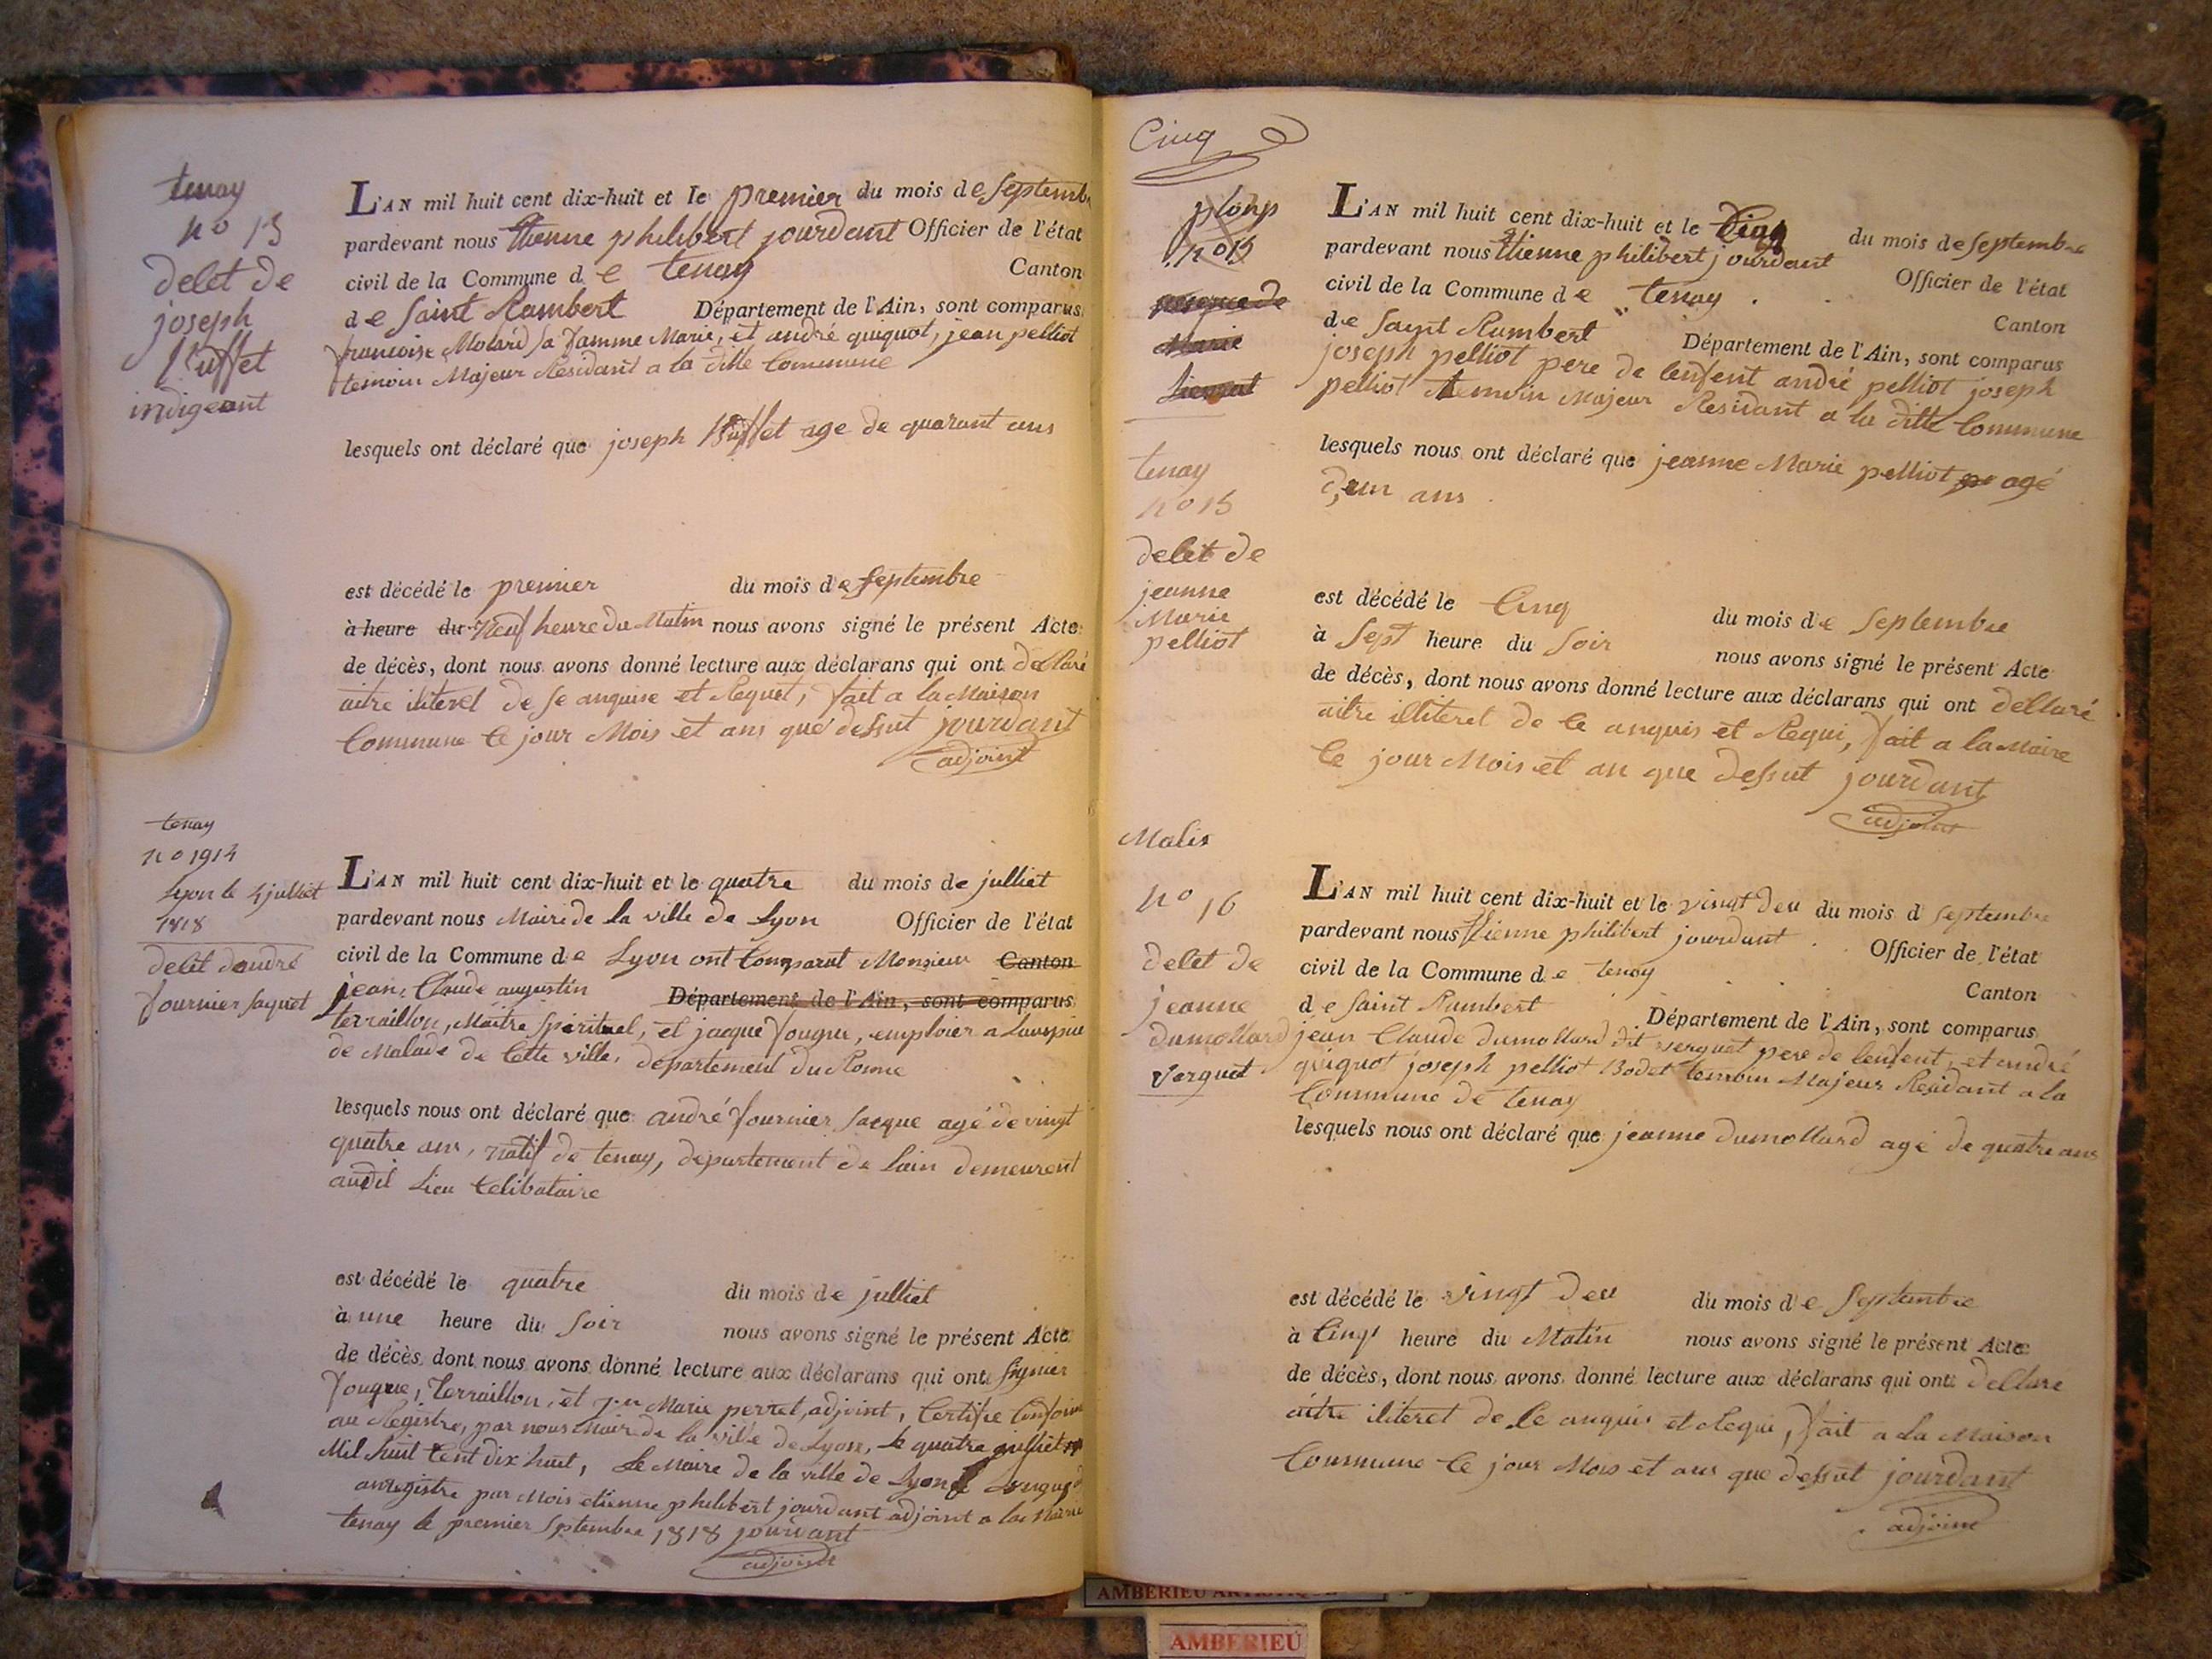 tenay
no 13
delet de
joseph
Buffet
indigeant
L'AN mil huit cent dix-huit et le premier du mois de Septemb
pardevant nous Etienne philibert jourdant Officier de l'état
civil de la Commune de tenay Canton
de Saint Rambert Département de l'Ain, sont comparus
francoise Molard sa famme Marie, et andré quiquot, jean pelliot
temoin Majeur Residant a la ditte Commune
lesquels ont déclaré que joseph Buffet age de quarant ans
est décédé le premier du mois de Septembre
à heure du Neuf heure du Matin nous avons signé le présent Acte
de décès, dont nous avons donné lecture aux déclarans qui ont dellaré
aitre iliteret de se anquise et Requet, fait a la Maison
Commune Ce jour Mois et ans que dessut jourdant
adjoint
tenay
no 1914
Lyon le 4 julliet
1818
delet dandré
fournier Saquet
L'AN mil huit cent dix-huit et le quatre du mois de julliet
pardevant nous Maire de la ville de Lyon Officier de l'état
civil de la Commune de Lyon ont Comparut Monsieur Canton
jean, Claude augustin Département de l'Ain, sont comparus
terraillon, Maitre Spirituel, et jacque fougue, emploier a
de Malade de Cette ville, departement du Ronne
lesquels nous ont déclaré que andré fournier Sacque agé de vingt
quatre ans, natif de tenay, departement de Lain demeurent
audit Lieu Celibataire
est décédé le quatre du mois de julliet
à une heure du Soir nous avons signé le présent Acte
de décès, dont nous avons donné lecture aux déclarans qui ont Signier
fougue, terraillon, et Marie perret, adjoint, Certifie Conforme
au Registre, par nous Maire de la ville de Lyon, le quatre julliet
Mil huit Cent dix huit, Le Maire de la ville de Lyon
anregistre par Mois etienne philibert jourdant adjoint a la Mairie
tenay le premier Sptembre 1818 jourdant
adjoint
Cinq
no 15
Marie
tenay
no 15
delet de
jeanne
Marie
pelliot
L'AN mil huit cent dix-huit et le Cinq du mois de Septembre
pardevant nous Etienne philibert jourdant Officier de l'état
civil de la Commune de tenay Canton
de Saynt Rambert Département de l'Ain, sont comparus
joseph pelliot pere de lenfent andré pelliot joseph
pelliot temoin Majeur Residant a la ditte Commune
lesquels nous ont déclaré que jeanne Marie pelliot agé
d'un ans
est décédé le Cinq du mois de Septembre
à Sept heure du Soir nous avons signé le présent Acte
de décès, dont nous avons donné lecture aux déclarans qui ont dellaré
aitre illiteret de Ce anquis et Requi, fait a la Maire
Ce jour Mois et an que dessut jourdant
adjoint
Malis
no 16
delet de
jeanne
dumollard
Verguet
L'AN mil huit cent dix-huit et le vingt deu du mois d Septembre
pardevant nous Etienne philibert jourdant Officier de l'état
civil de la Commune de tenay Canton
de Saint Rambert Département de l'Ain, sont comparus
jean Claude dumollard dit verguet pere de lenfent, et andré
quiquot joseph pelliot Bodet temoin Majeur Residant a la
Commune de tenay
lesquels nous ont déclaré que jeanne dumollard agé de quatre ans
est décédé le vingt deu du mois de Septembre
à Cinq heure du Matin nous avons signé le présent Acte
de décès, dont nous avons donné lecture aux déclarans qui ont dellare
aitre iliteret de Ce anquis et Requi, fait a la Maison
Commune Ce jour Mois et ans que dessut jourdant
adjoint
AMBERIEU
AMBERIEU